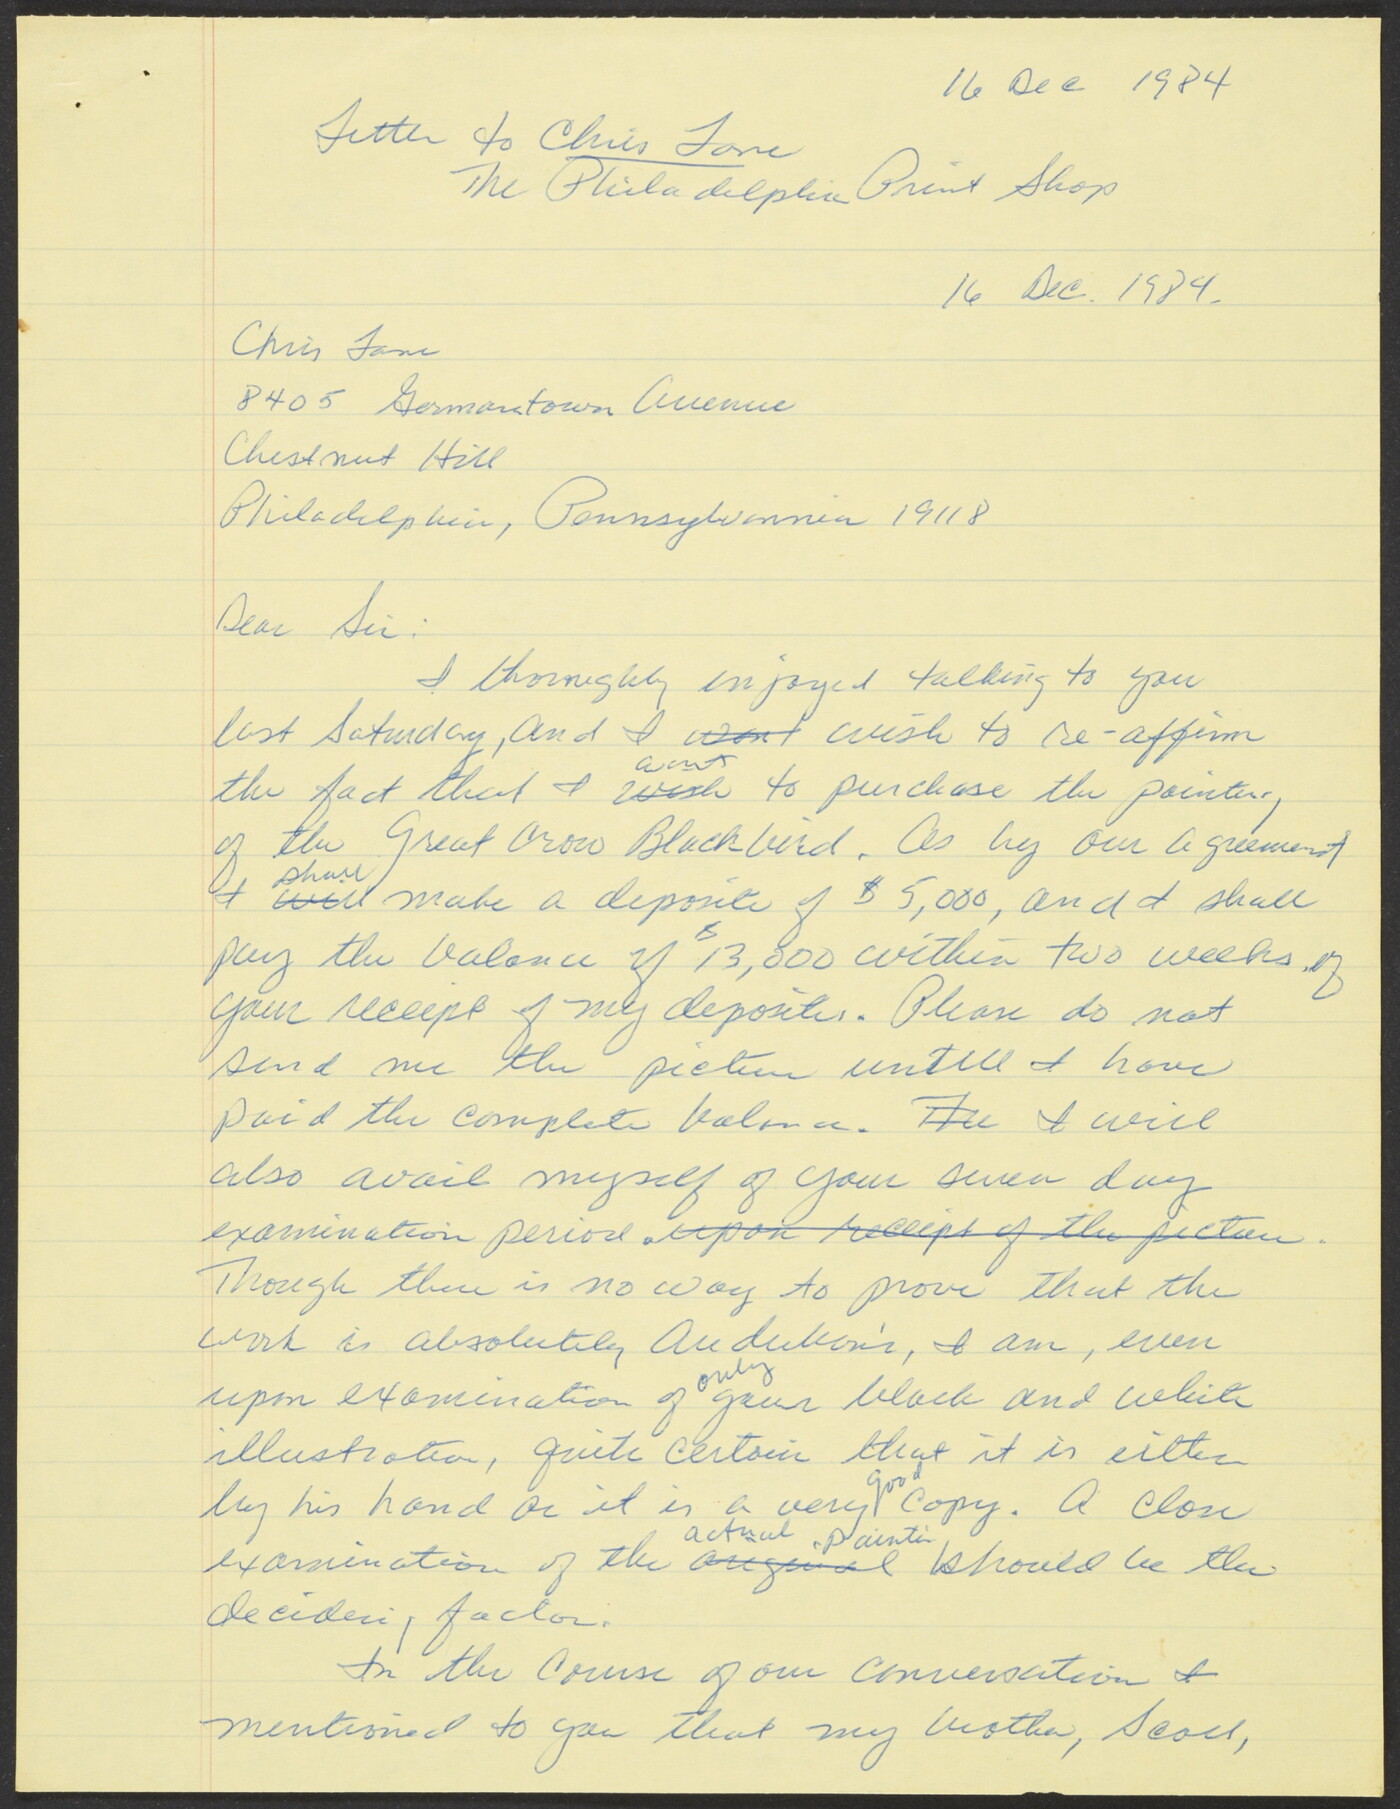 16 Dec 1984
Letter to Chris Lane
The Philadelphia Print Shop
16 Dec. 1984.
Chris Lane
8405 Germantown Avenue
Chestnut Hill
Philadelphia, Pennsylvannia 19118
Dear Sir:
I thoroughly injoyed talking to you
last Saturday, and I want wish to re-affirm
want
the fact that I wish to purchase the painting
of the Great Crow Blackbird. As by our agreement
shall
I will make a deposite of $5,000, and I shall
pay the balance of $13,800 within two weeks of
your receipt of my deposite. Please do not
send me the picture untill I have
paid the complete balance. The I will
also avail myself of your seven day
examination period. upon receipt of the picture.
Though there is no way to prove that the
work is absolutely Audubon's, I am, even
only
upon examination of your black and white
illustration, quite certain that it is either
good
by his hand or it is a very copy. A close
actual painting
examination of the original should be the
deciding factor.
In the course of our conversation I
mentioned to you that my brother, Scott,